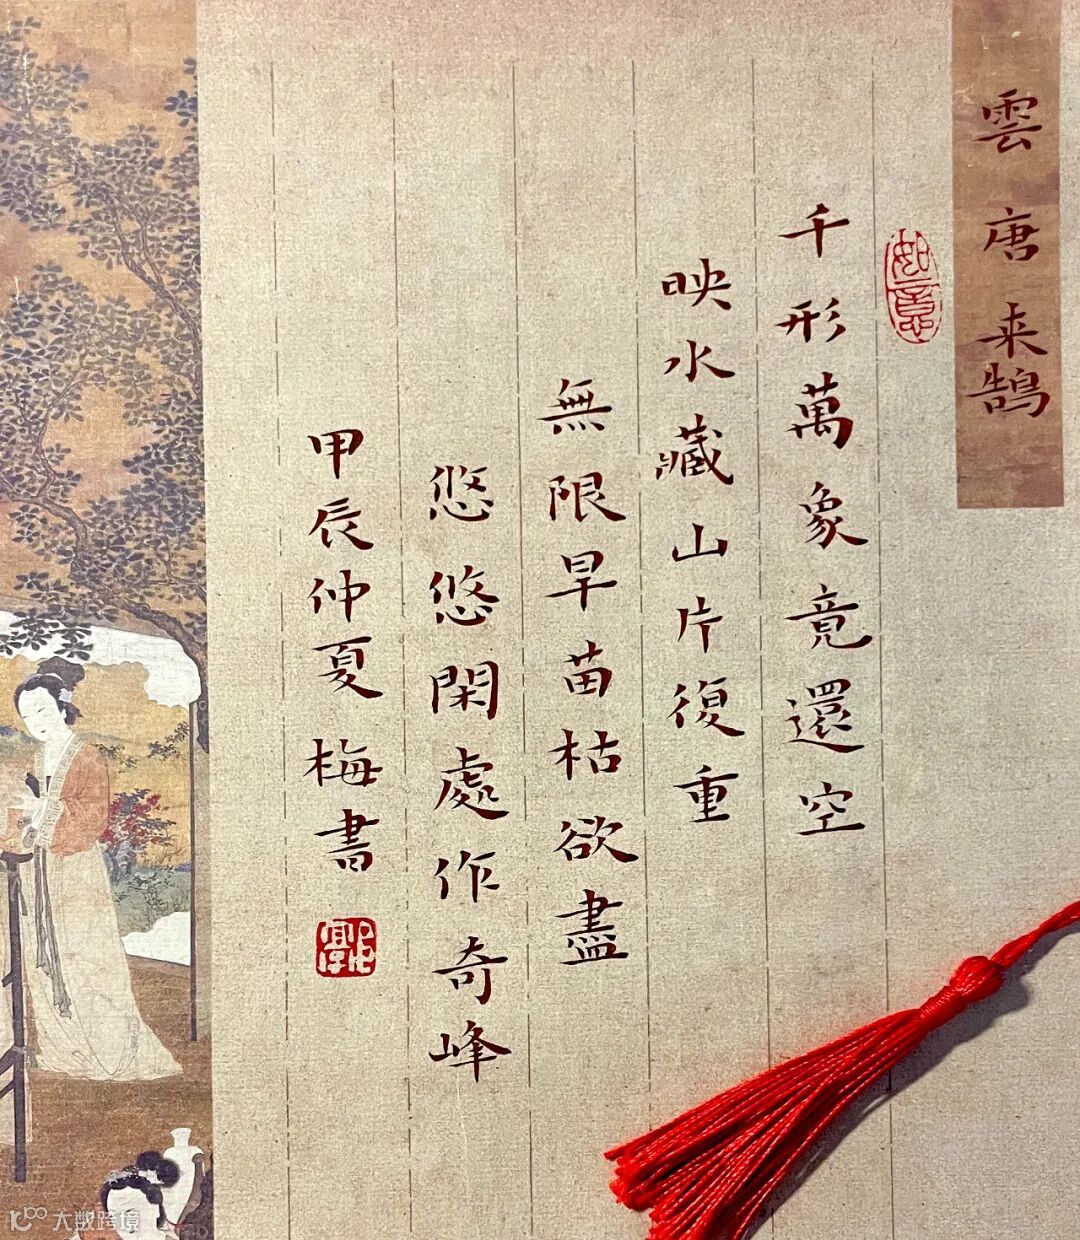 雲 唐 来鹄
如意
千形萬象竟還空
映水藏山片復重
無限旱苗枯欲盡
悠悠閑處作奇峰
甲辰仲夏梅書
大数跨境